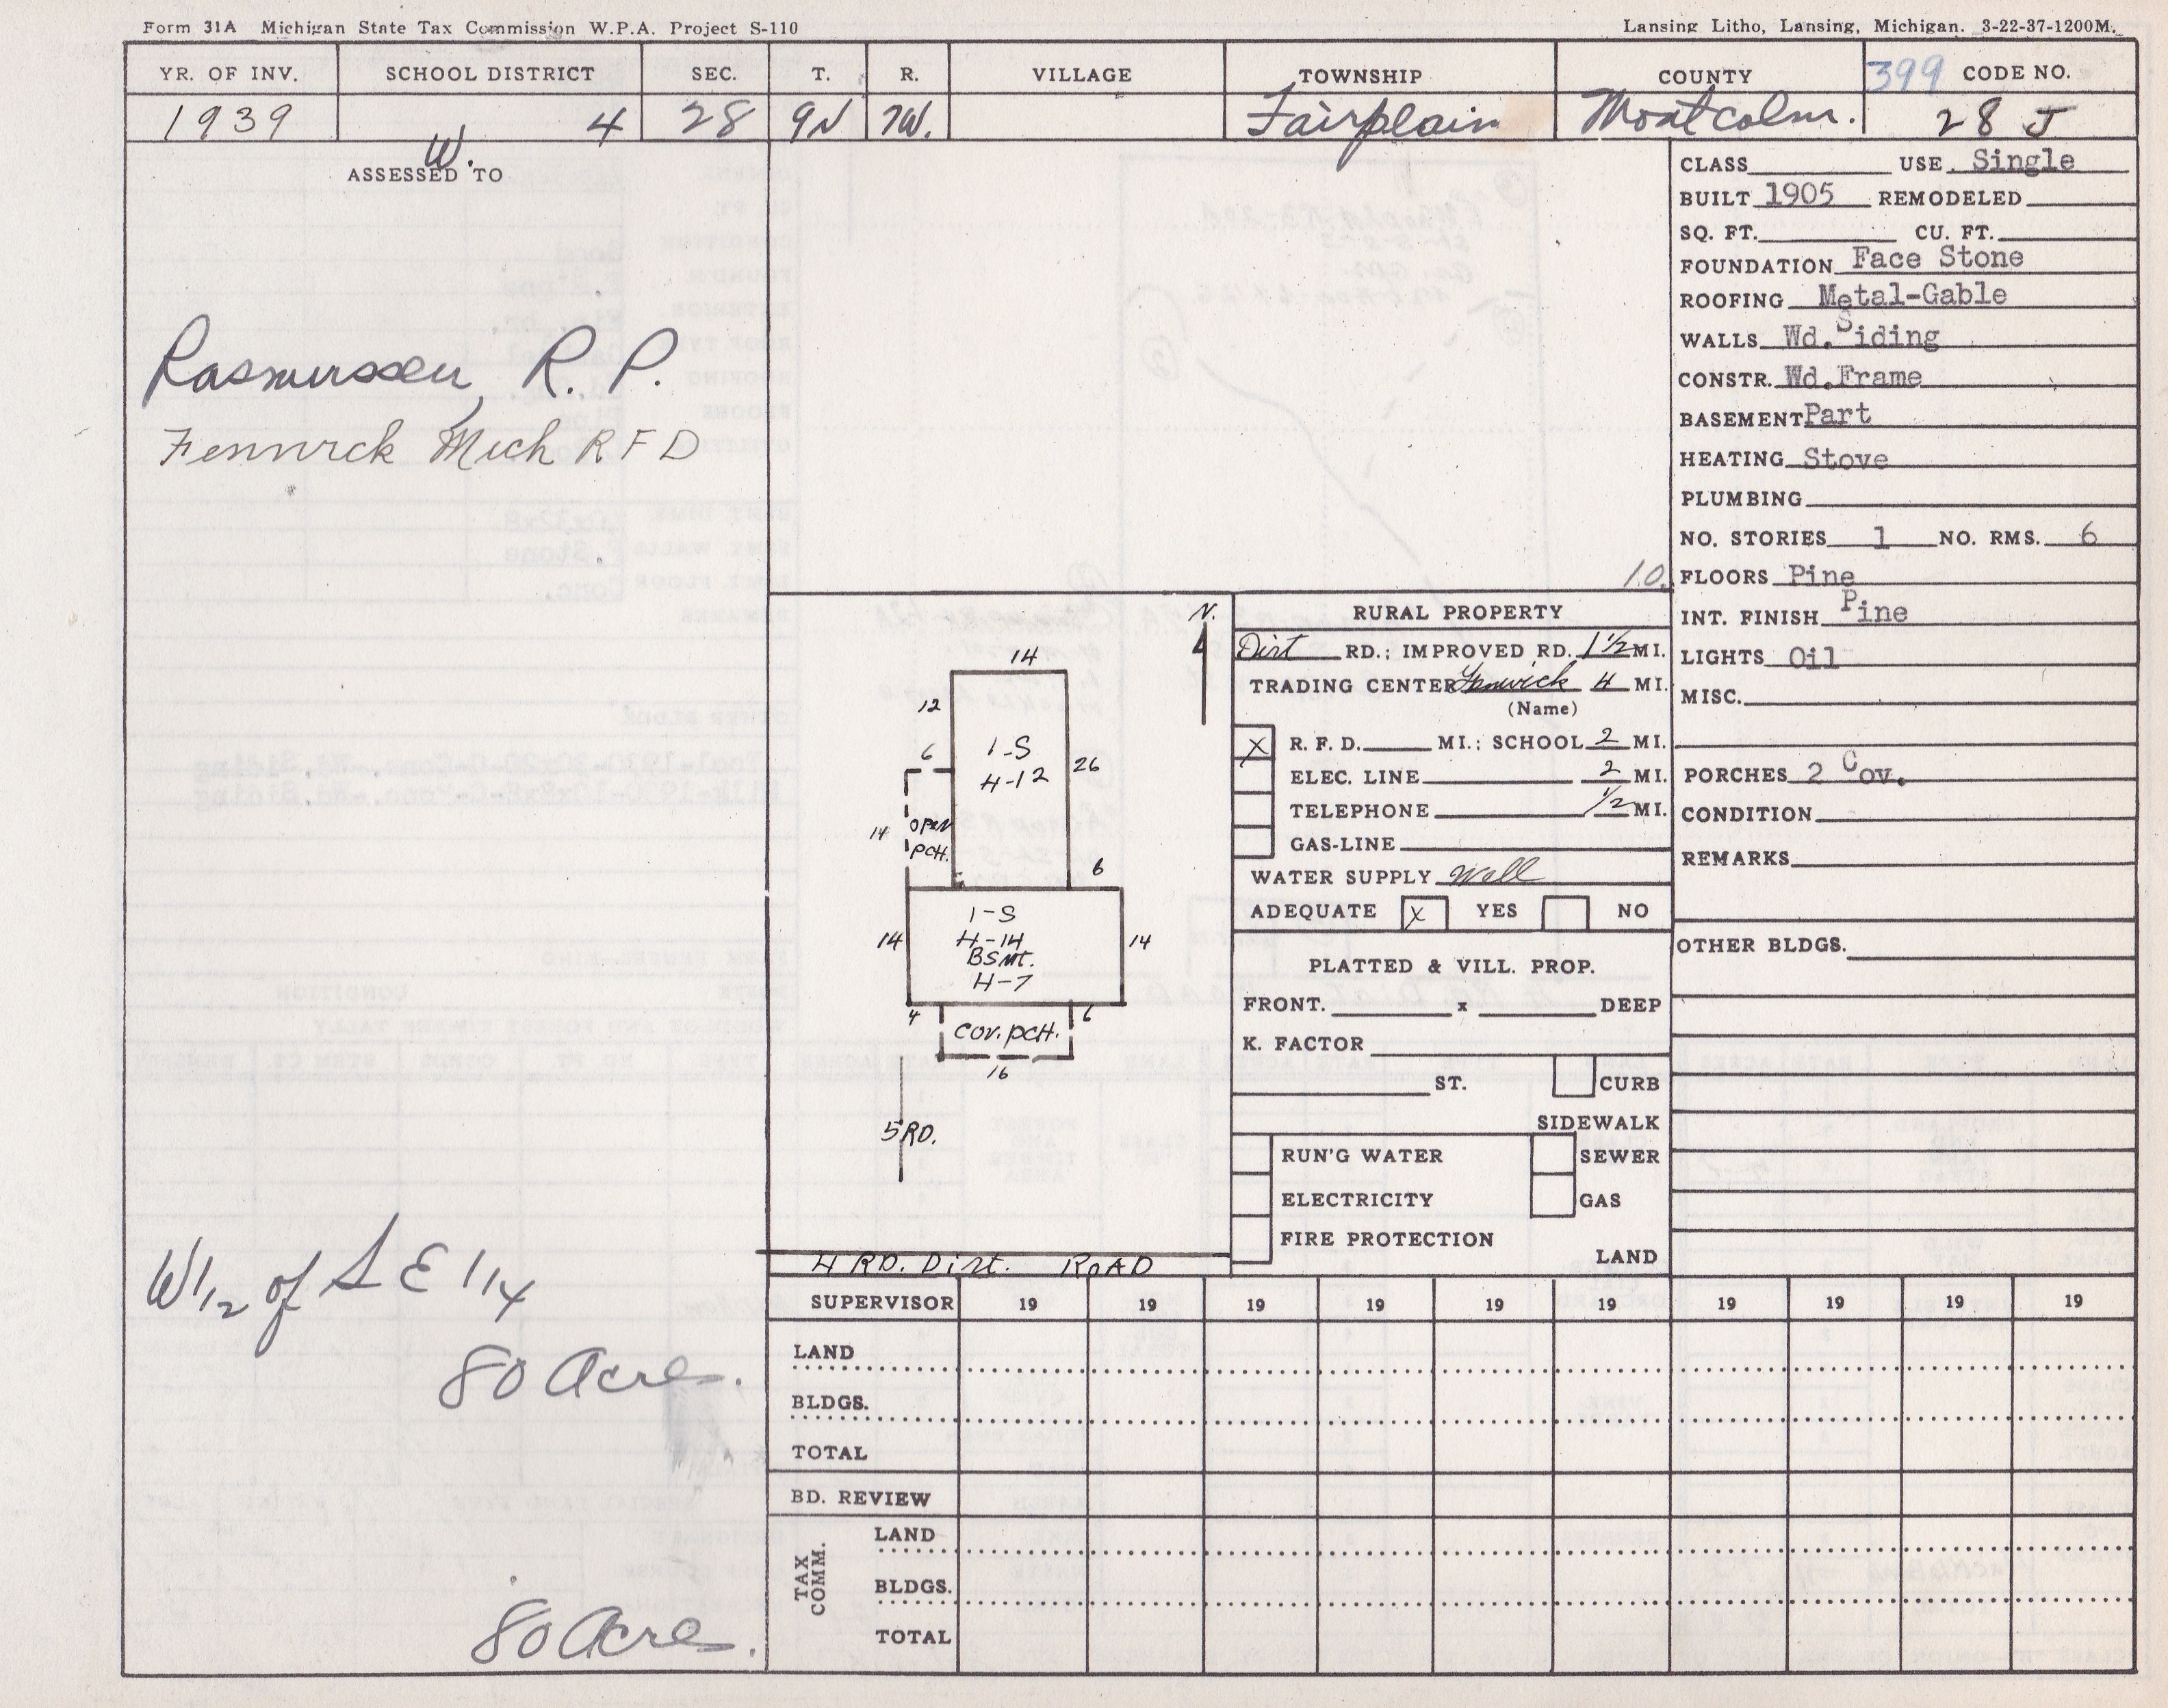 Form 31A Michigan State Tax Commission W.P.A. Project S-110
Lansing Litho, Lansing, Michigan. 3-22-37-1200M.
YR. OF INV. SCHOOL DISTRICT SEC. T. R. VILLAGE TOWNSHIP COUNTY 399 CODE NO.
1939 4 28 9N 7W. Fairplain Montcalm. 28 J
W.
ASSESSED TO
Rasmussen, R. P.
Fenwick Mich R F D
W 1/2 of S E 1/4
80 Acres.
80 Acres.
1.0.
N.
14
12
1-S
H-12
6
26
14
OPEN
PCH.
6
1-S
14
H-14
14
BSMT.
H-7
4
6
COV. PCH.
16
5 RD.
4 RD. Dirt. ROAD
RURAL PROPERTY
Dirt RD.; IMPROVED RD. 1 1/2 MI.
TRADING CENTER Fenwick 4 MI.
(Name)
X R. F. D. MI.; SCHOOL 2 MI.
ELEC. LINE 2 MI.
TELEPHONE 1/2 MI.
GAS-LINE
WATER SUPPLY Well
ADEQUATE X YES NO
PLATTED & VILL. PROP.
FRONT. x DEEP
K. FACTOR
ST. CURB
SIDEWALK
RUN'G WATER SEWER
ELECTRICITY GAS
FIRE PROTECTION
LAND
CLASS USE. Single
BUILT 1905 REMODELED
SQ. FT. CU. FT.
FOUNDATION Face Stone
ROOFING Metal-Gable
WALLS Wd. Siding
CONSTR. Wd.Frame
BASEMENT Part
HEATING Stove
PLUMBING
NO. STORIES 1 NO. RMS. 6
FLOORS Pine
INT. FINISH Pine
LIGHTS Oil
MISC.
PORCHES 2 Cov.
CONDITION
REMARKS
OTHER BLDGS.
SUPERVISOR 19 19 19 19 19 19 19 19 19 19
LAND
BLDGS.
TOTAL
BD. REVIEW
TAX COMM.
LAND
BLDGS.
TOTAL